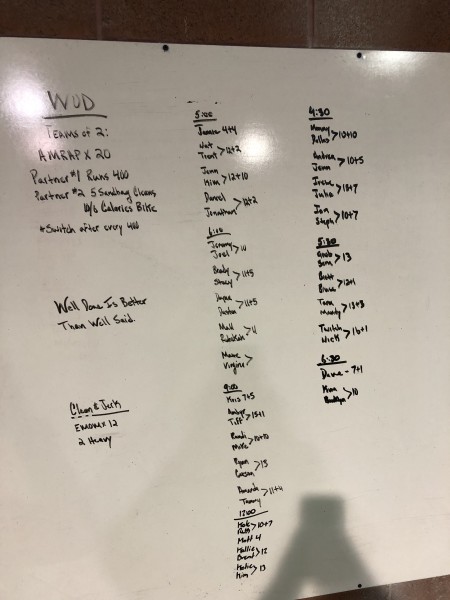 WOD
Teams of 2:
AMRAP x 20
Partner #1 Runs 400
Partner #2 5 Sandbag Cleans
10/8 Calories Bike
*Switch after every 400
Well Done Is Better
Than Well Said.
Clean & Jerk
EMOM x 12
2 Heavy
5:00
Jamie 4+4
Nat
Trent > 12+2
Jenn
Kim > 12+10
Daniel
Jonathan > 12+2
6:00
Jeremy
Joel > 11
Brady
Stacy > 11+5
> 11+5
Matt
> 11
Virginia >
9:00
Kris 7+5
Amber
Tiff > 15+1
Randi
Mike > 10+10
Ryan
Carson > 13
Amanda
Tammy > 11+4
12:00
> 10+7
Matt 4
Hollie
Brent > 12
Katie
Kim > 13
4:30
> 10+10
Andrea
Jenn > 10+5
Irene
Julia > 13+7
Jon
Steph > 10+7
5:30
> 13
Brett
> 12+1
Tara
Mandy > 13+3
Nick > 16+1
6:30
Dave - 7+1
Brooklyn > 10